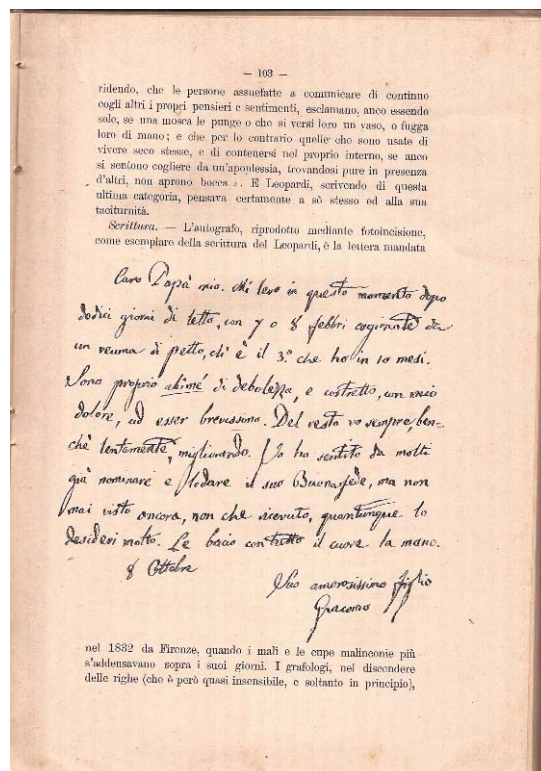 — 103 —
ridendo, che le persone assuefatte a comunicare di continuo
cogli altri i propri pensieri e sentimenti, esclamano, anco essendo
sole, se una mosca le punge o che si versi loro un vaso, o fugga
loro di mano; e che per lo contrario quelle che sono usate di
vivere seco stesse, e di contenersi nel proprio interno, se anco
si sentono cogliere da un'apoplessia, trovandosi pure in presenza
d'altri, non aprono bocca ». E Leopardi, scrivendo di questa
ultima categoria, pensava certamente a sè stesso ed alla sua
taciturnità.
Scrittura. — L'autografo, riprodotto mediante fotoincisione,
come esemplare della scrittura del Leopardi, è la lettera mandata
Caro Papà mio. Mi levo in questo momento dopo
dodici giorni di letto, con 7 o 8 febbri cagionate da
un reuma di petto, ch'è il 3.º che ho in 10 mesi.
Sono proprio di debolezza, e costretto, con mio
dolore, ad esser brevissimo. Del resto vo sempre, ben-
chè lentamente, migliorando. Io ho sentito da molti
già nominare e lodare il suo Buonafede, ma non
mai visto ancora, non che ricevuto, quantunque lo
desideri molto. Le bacio con tutto il cuore la mano.
8 Ottobre
Suo amorosissimo figlio
Giacomo
nel 1832 da Firenze, quando i mali e le cupe malinconie più
s'addensavano sopra i suoi giorni. I grafologi, nel discendere
delle righe (che è però quasi insensibile, e soltanto in principio),